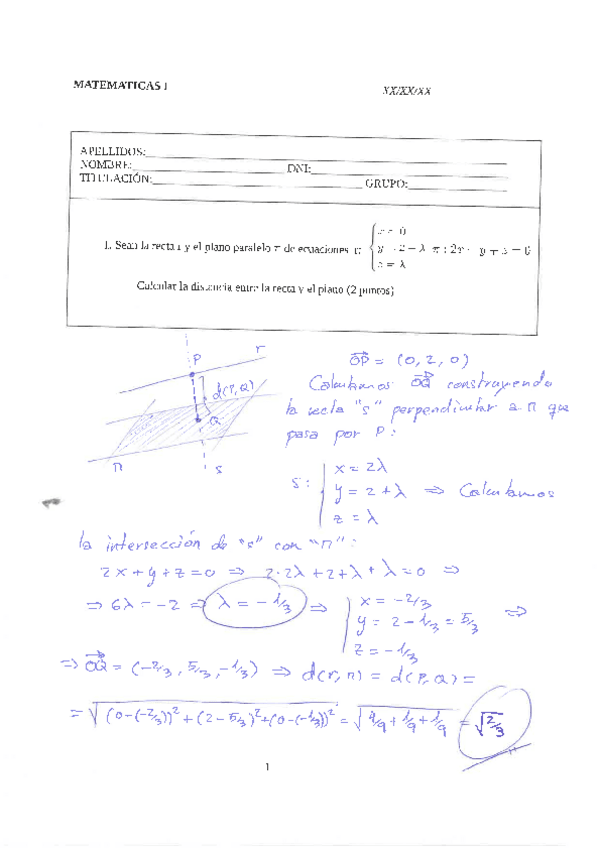 MATEMATICAS I
XX/XX/XX
APELLIDOS:
NOMBRE: DNI:
TITULACIÓN: GRUPO:
1. Sean la recta r y el plano paralelo π de ecuaciones r: { x = 0
y = 2 − λ π : 2x + y + z = 0
z = λ
Calcular la distancia entre la recta y el plano (2 puntos)
P r
d(P,Q)
Q
π s
OP = (0, 2, 0)
Calculamos OQ construyendo
la recta "s" perpendicular a π que
pasa por P:
s: { x = 2λ
y = 2 + λ ⇒ Calculamos
z = λ
la intersección de "s" con "π":
2x + y + z = 0 ⇒ 2·2λ + 2 + λ + λ = 0 ⇒
⇒ 6λ = −2 ⇒ λ = −1/3 ⇒ { x = −2/3
y = 2 − 1/3 = 5/3 ⇒
z = −1/3
⇒ OQ = (−2/3, 5/3, −1/3) ⇒ d(r, π) = d(P, Q) =
= √((0−(−2/3))² + (2 − 5/3)² + (0−(−1/3))²) = √(4/9 + 1/9 + 1/9) = √(2/3)
1